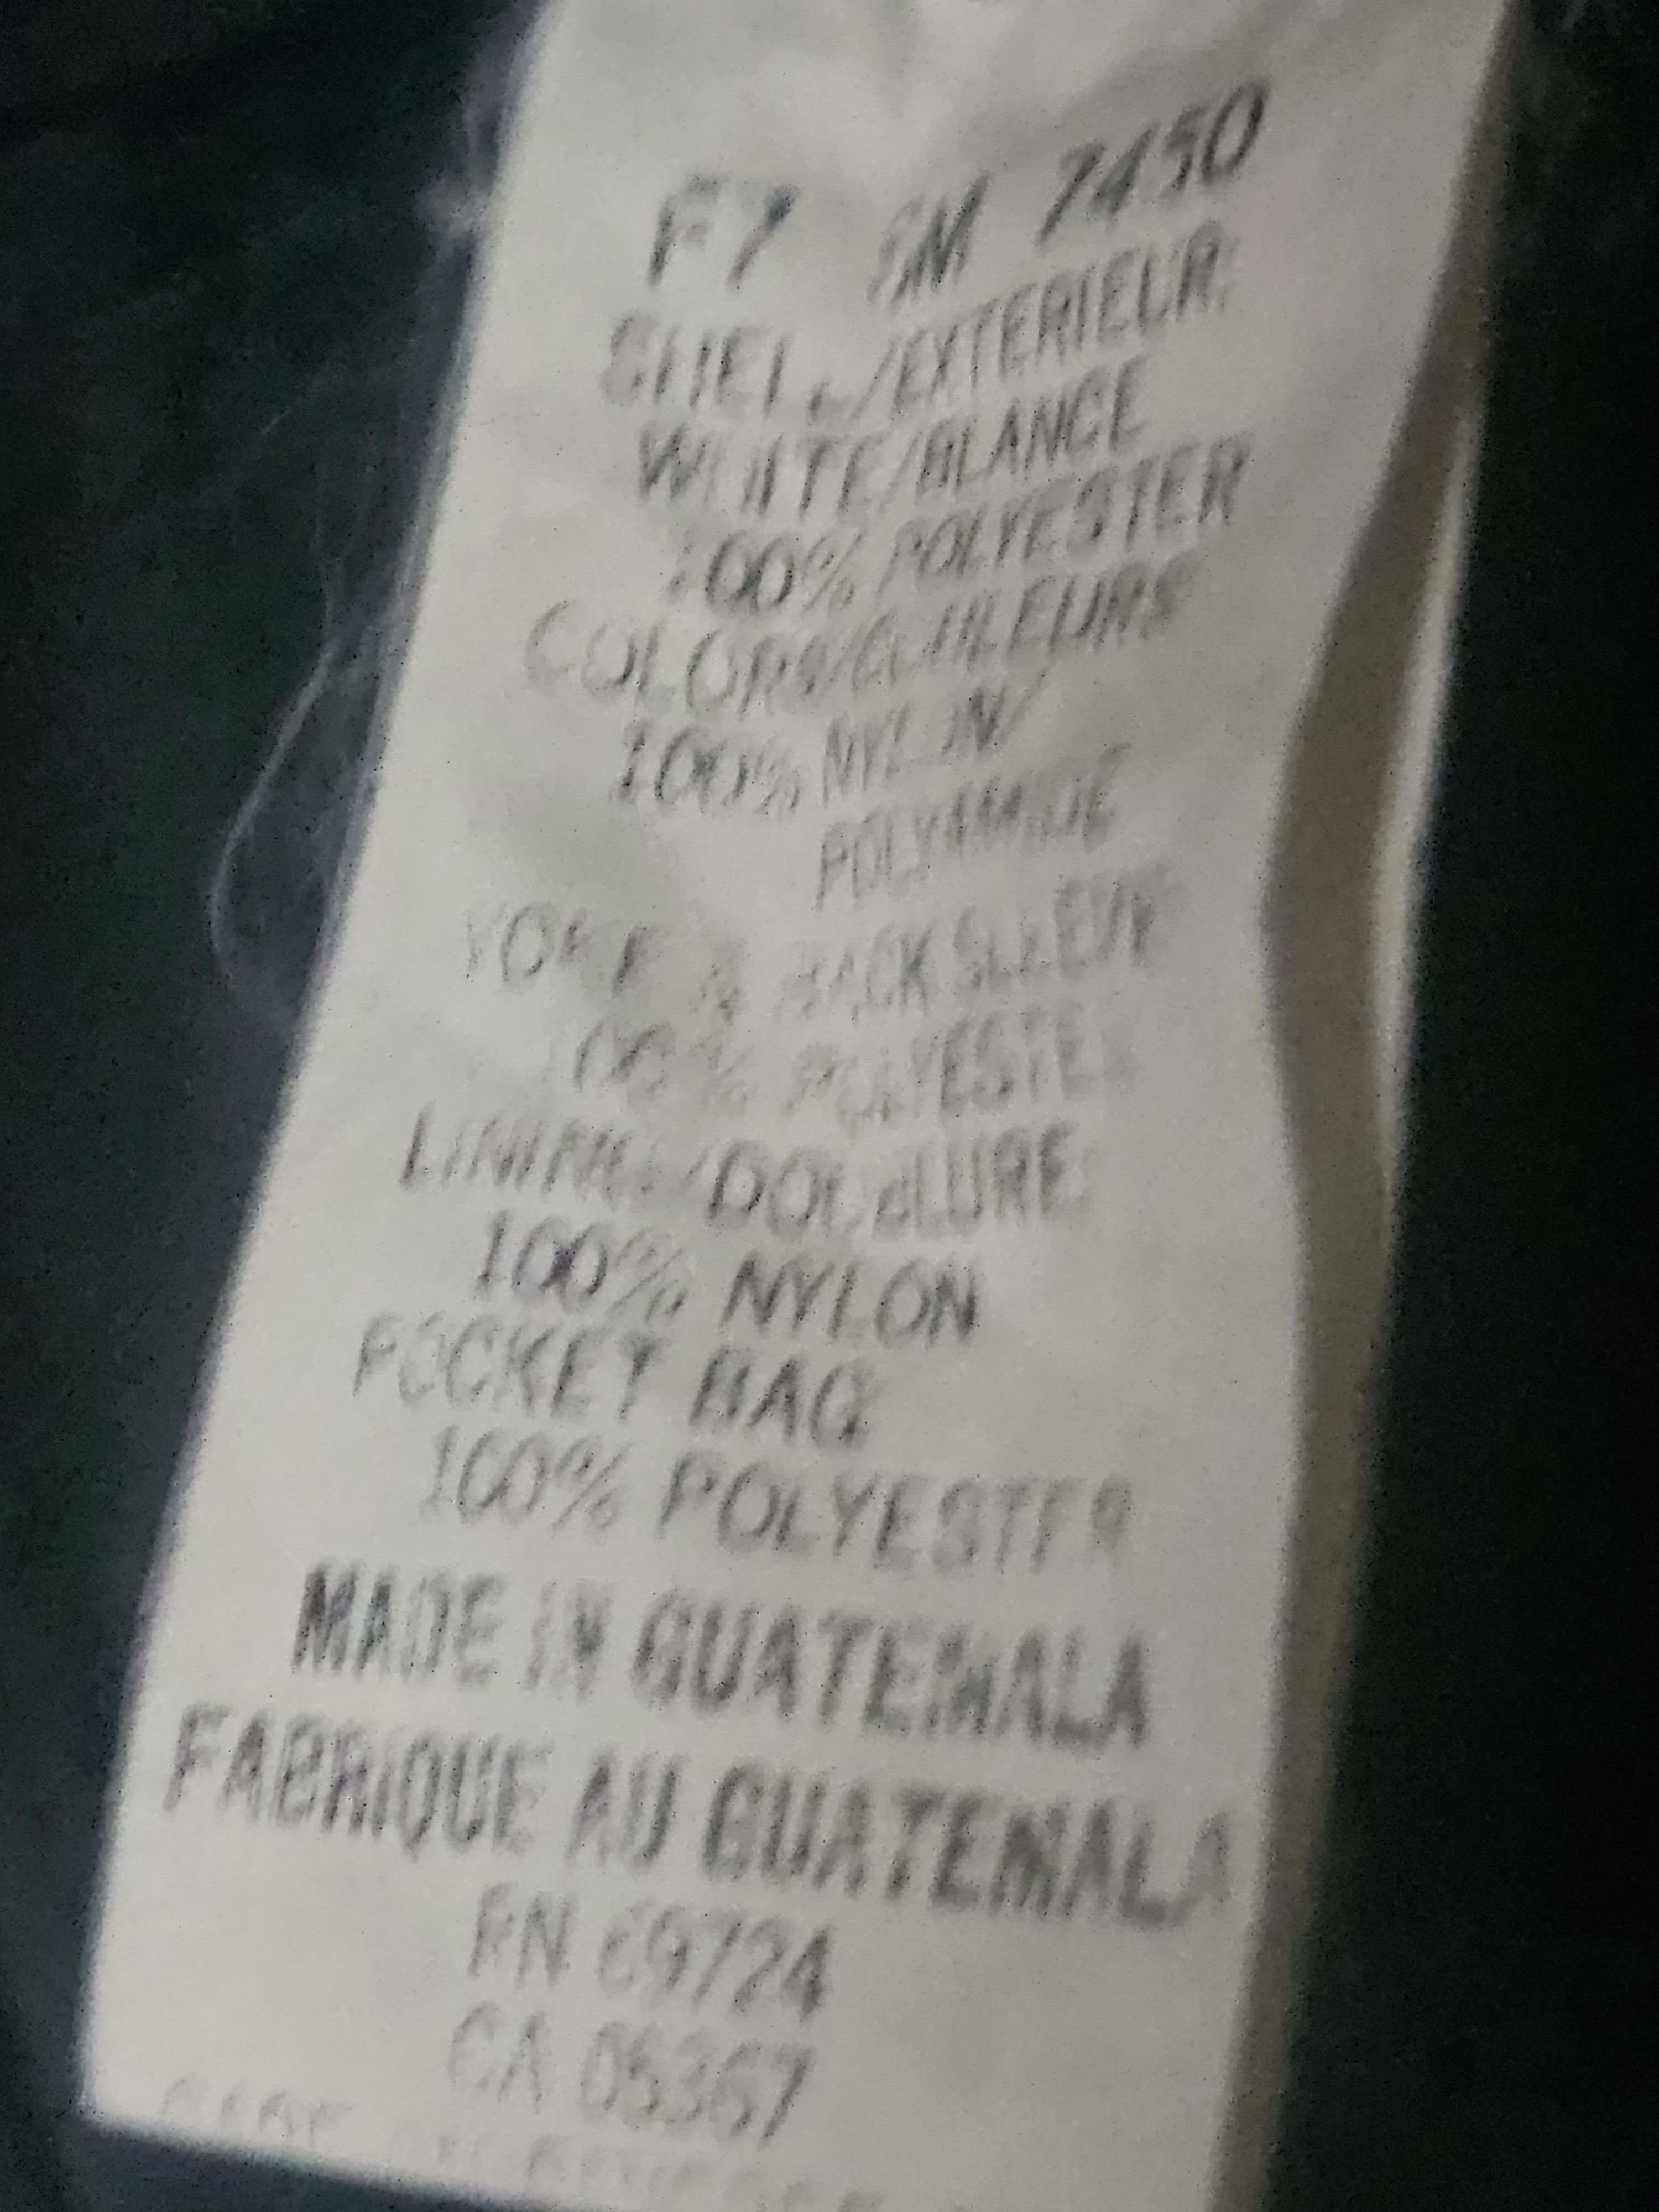 F7 SM 7450
SHELL/EXTERIEUR:
WHITE/BLANCE
100% POLYESTER
COLORS/COULEURS
100% NYLON/
POLYAMIDE
YOKE & BACK SLEEVE
100% POLYESTER
LINING/DOUBLURE:
100% NYLON
POCKET BAG
100% POLYESTER
MADE IN GUATEMALA
FABRIQUE AU GUATEMALA
RN 69724
CA 05367
CARE REVERSE